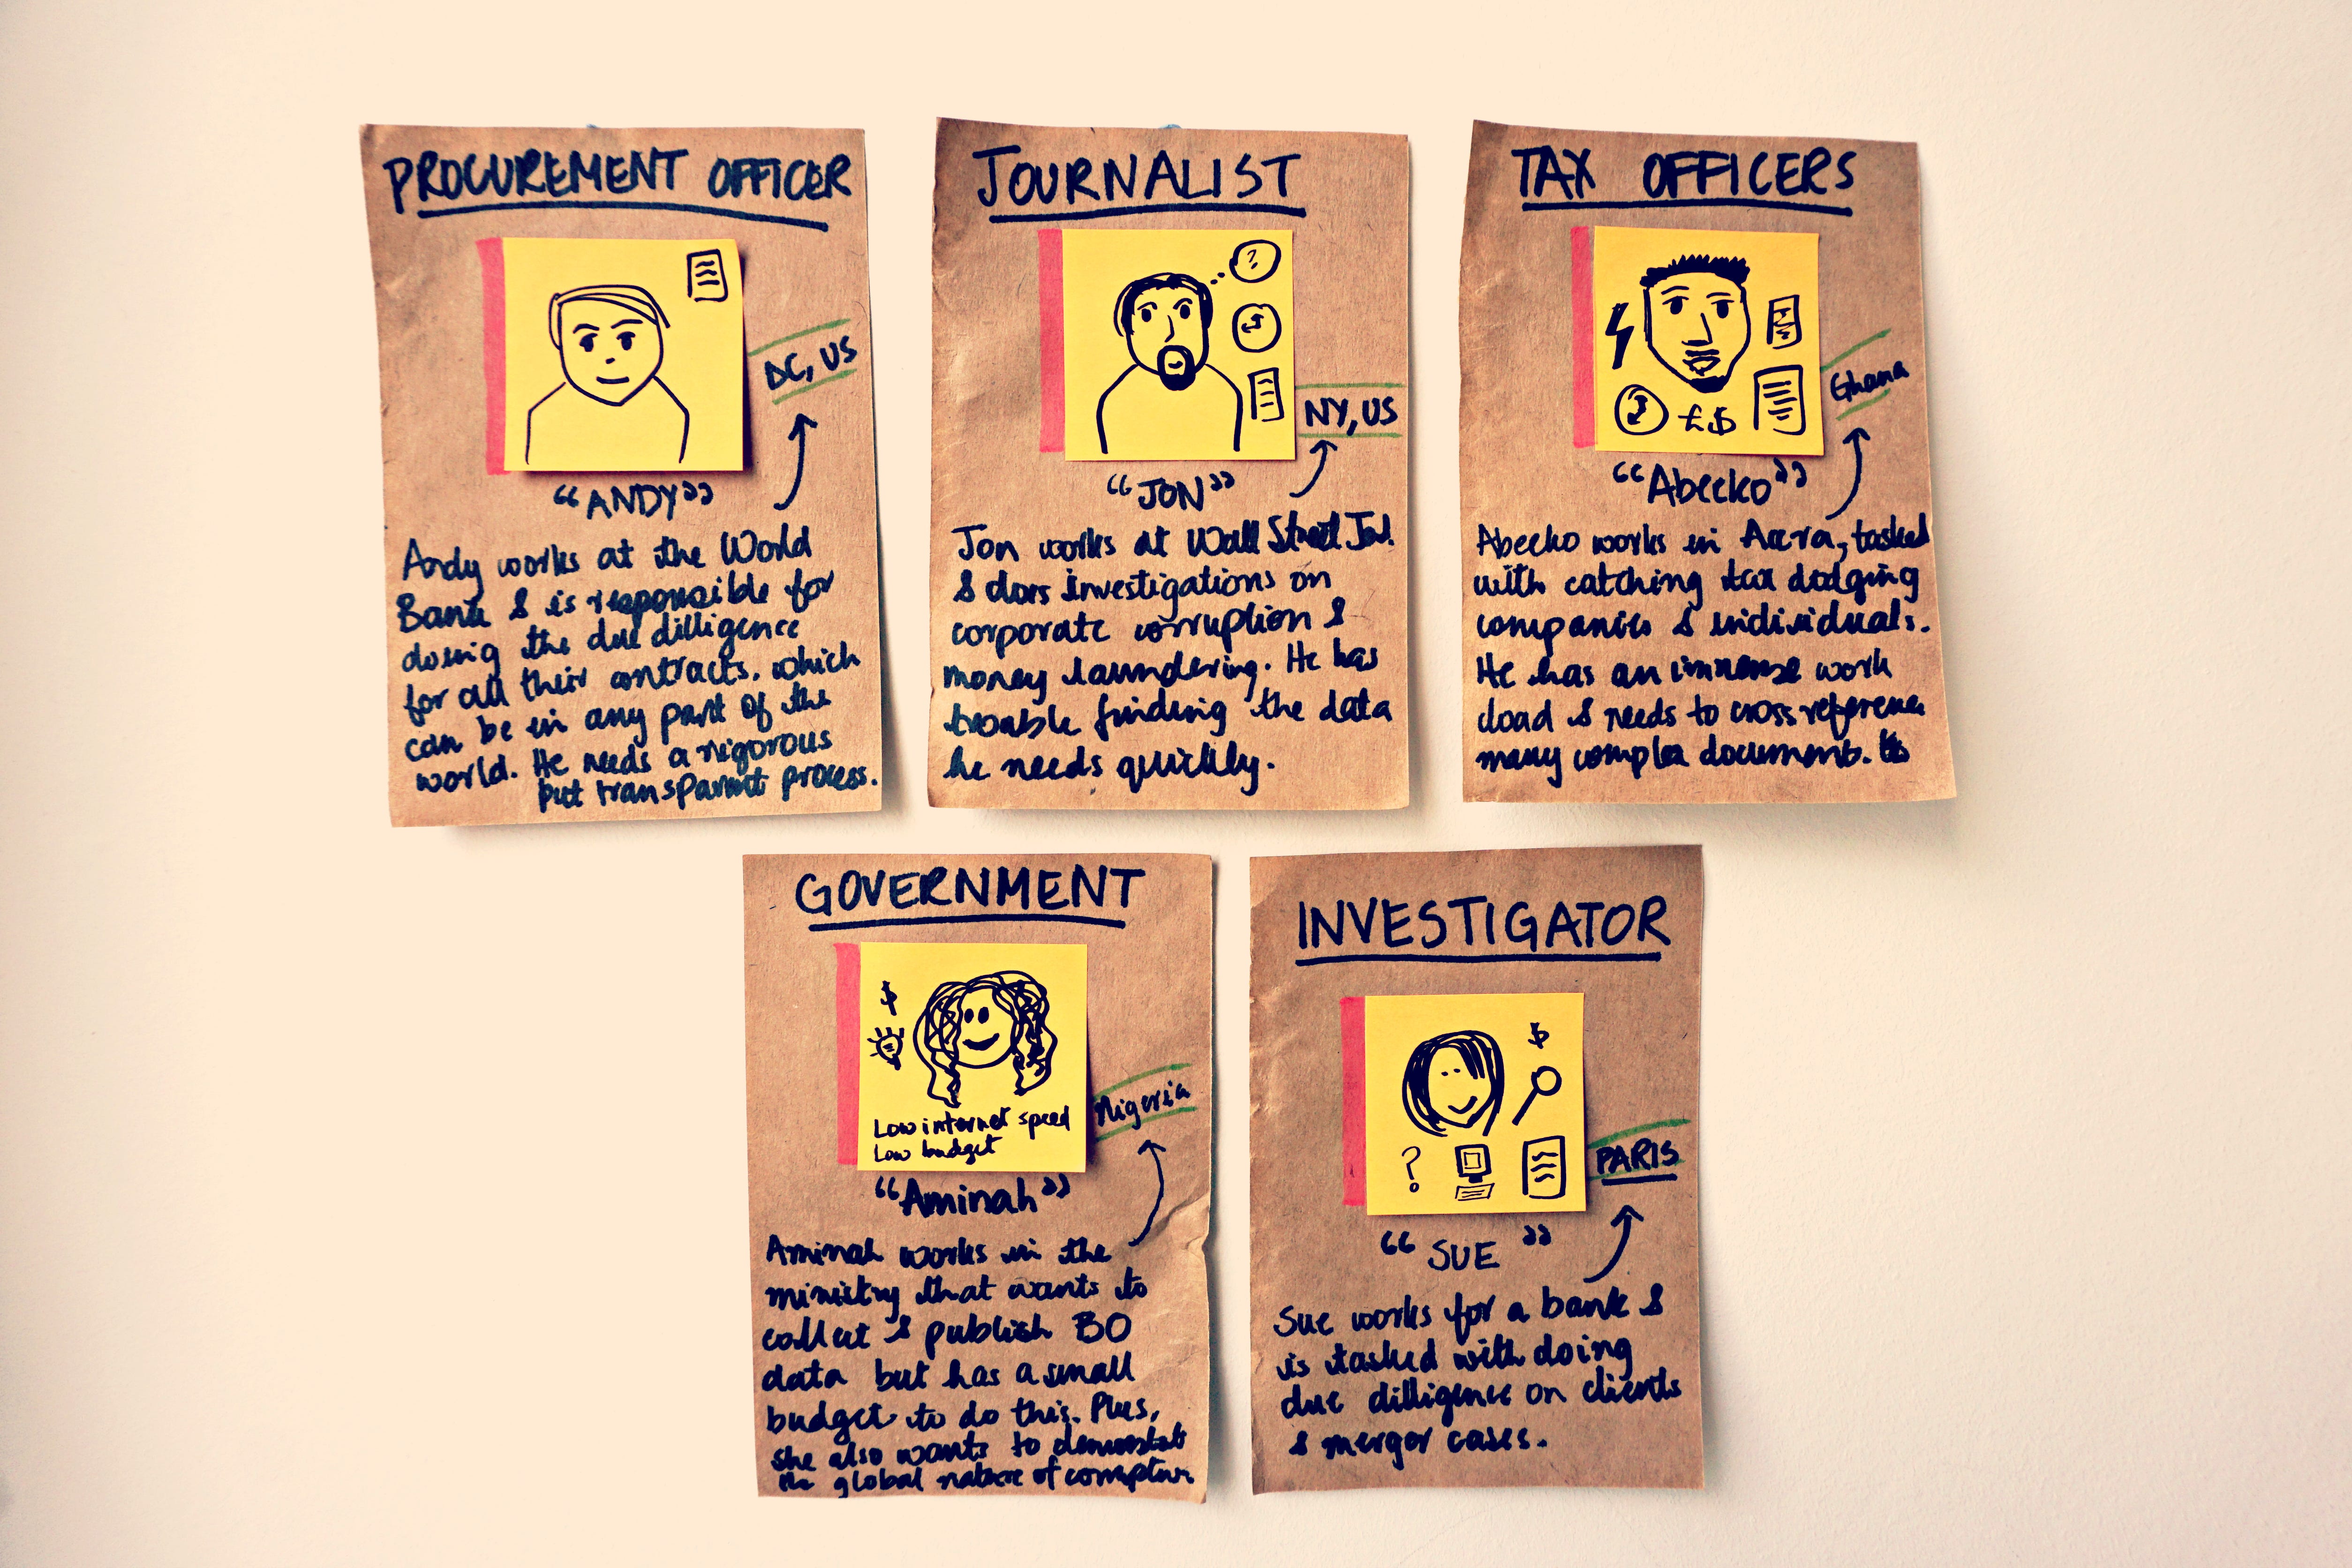 PROCUREMENT OFFICER
DC, US
“ANDY”
Andy works at the World
Bank & is responsible for
doing the due dilligence
for all their contracts, which
can be in any part of the
world. He needs a rigorous
but transparent process.
JOURNALIST
?
NY, US
“JON”
Jon works at Wall Street Jol.
& does investigations on
corporate corruption &
money laundering. He has
trouble finding the data
he needs quickly.
TAX OFFICERS
£$
Ghana
“Abeeko”
Abeeko works in Accra, tasked
with catching tax dodging
companies & individuals.
He has an immense work
load & needs to cross reference
many complex documents.
GOVERNMENT
$
Low internet speed
Low budget
Nigeria
“Aminah”
Aminah works in the
ministry that wants to
collect & publish BO
data but has a small
budget to do this. Plus,
she also wants to demonstrate
the global nature of corruption
INVESTIGATOR
$
?
PARIS
“SUE”
Sue works for a bank &
is tasked with doing
due dilligence on clients
& merger cases.